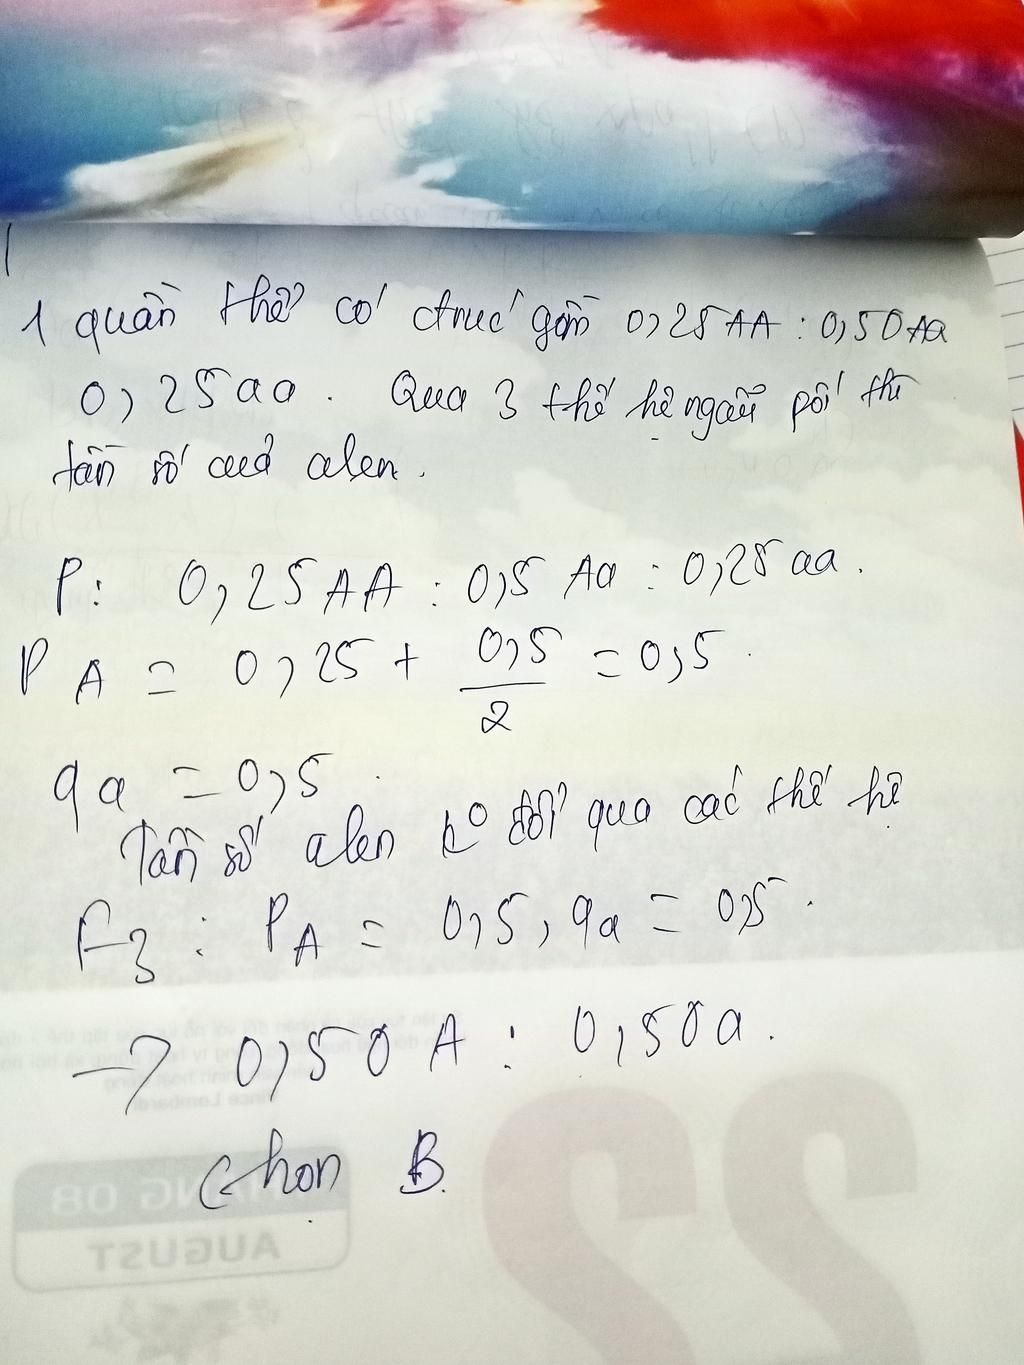 1 quần thể có ctrúc gồm 0,25AA : 0,50Aa
0,25aa. Qua 3 thế hệ ngẫu pối thì
tần số của alen.
P: 0,25AA : 0,5 Aa : 0,25 aa.
PA = 0,25 + 0,5/2 = 0,5.
qa = 0,5.
Tần số alen ko đổi qua các thế hệ
F3 : PA = 0,5, qa = 0,5.
→ 0,50A : 0,50a.
Chọn B.
08
AUGUST
22